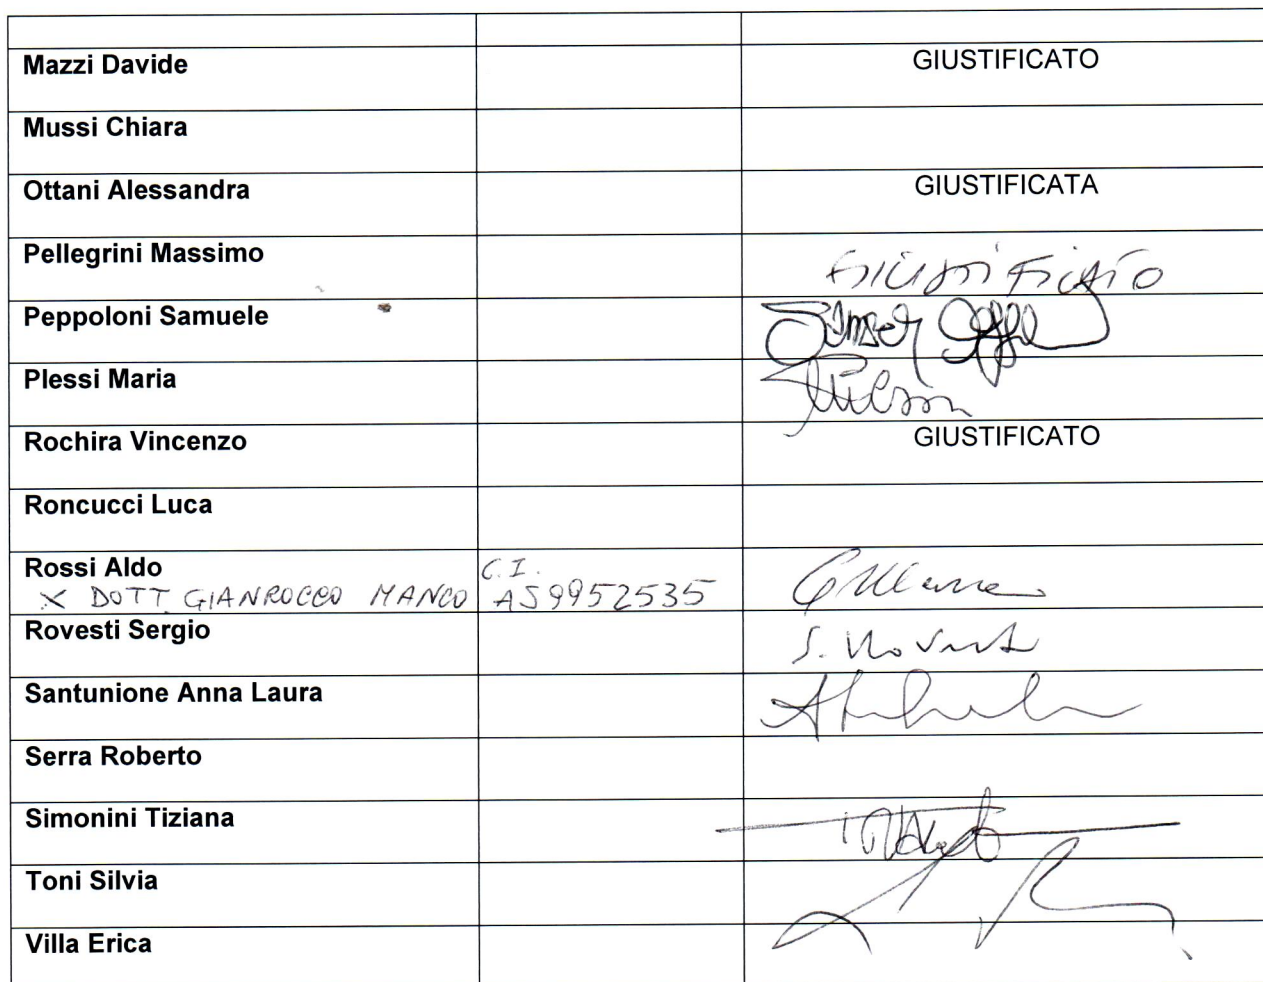 Mazzi Davide GIUSTIFICATO
Mussi Chiara
Ottani Alessandra GIUSTIFICATA
Pellegrini Massimo Giustificato
Peppoloni Samuele
Plessi Maria
Rochira Vincenzo GIUSTIFICATO
Roncucci Luca
Rossi Aldo C.I.
X DOTT. GIANROCCO MANCO AS9952535
Rovesti Sergio S. Rovesti
Santunione Anna Laura
Serra Roberto
Simonini Tiziana
Toni Silvia
Villa Erica